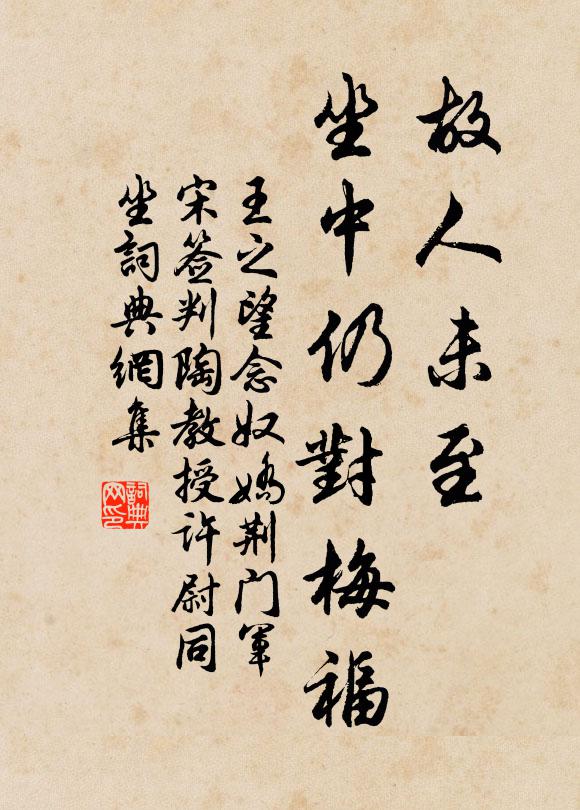 故人未至
坐中仍對梅福
王之望念奴嬌荆门軍
宋簽判陶教授许尉同
坐詞典網集
詞典网印